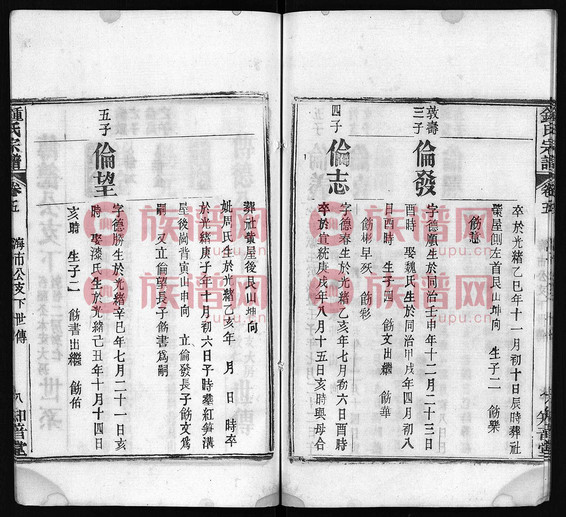 卒於光緒乙巳年十一月初十日辰時葬社
屋側左首艮山坤向 生子二 飭樂
飭慧
敦壽三子
倫發
字德順生於同治壬申年十二月二十三日
日酉時 娶魏氏生於同治甲戌年四月初八
日 時 生子四 飭文出繼 飭華
飭彬早殁 飭彩
四子
倫志
字德春生於光緒乙亥年 月初六日酉時
卒於宣統庚戌年八月十五日亥時與母合
葬社 屋後艮山坤向
妣周氏生於光緒乙亥年 月 日 時卒
於光緒庚子年十月初六日子時葬紅笋溝
屋後 背寅山申向 立倫發長子飭文爲
嗣 又立倫望長子飭書爲嗣
五子
倫望
字德勝生於光緒辛巳年七月二十一日亥
時 娶漆氏生於光緒己丑年十月十四日
亥時 生子二 飭書出繼 飭佑
鍾氏宗譜
卷五
海市公支下世傳
八
知音堂
族谱网
zupu.cn